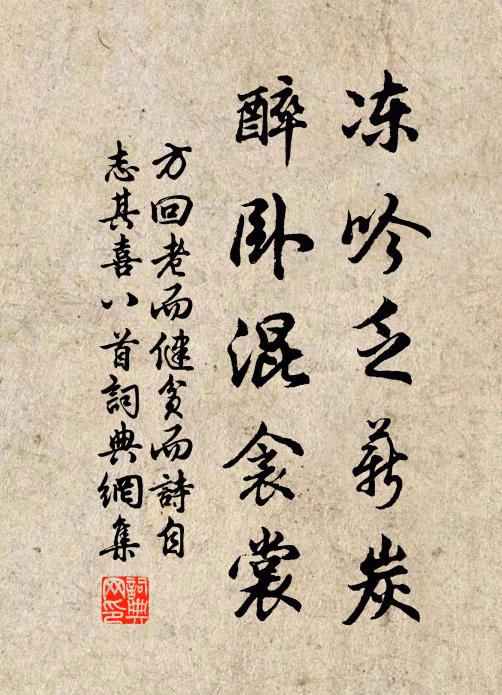 冻吟乏薪炭
醉卧混衾裳
方回老而健貧而詩自
志其喜八首詞典網集
詞典网印